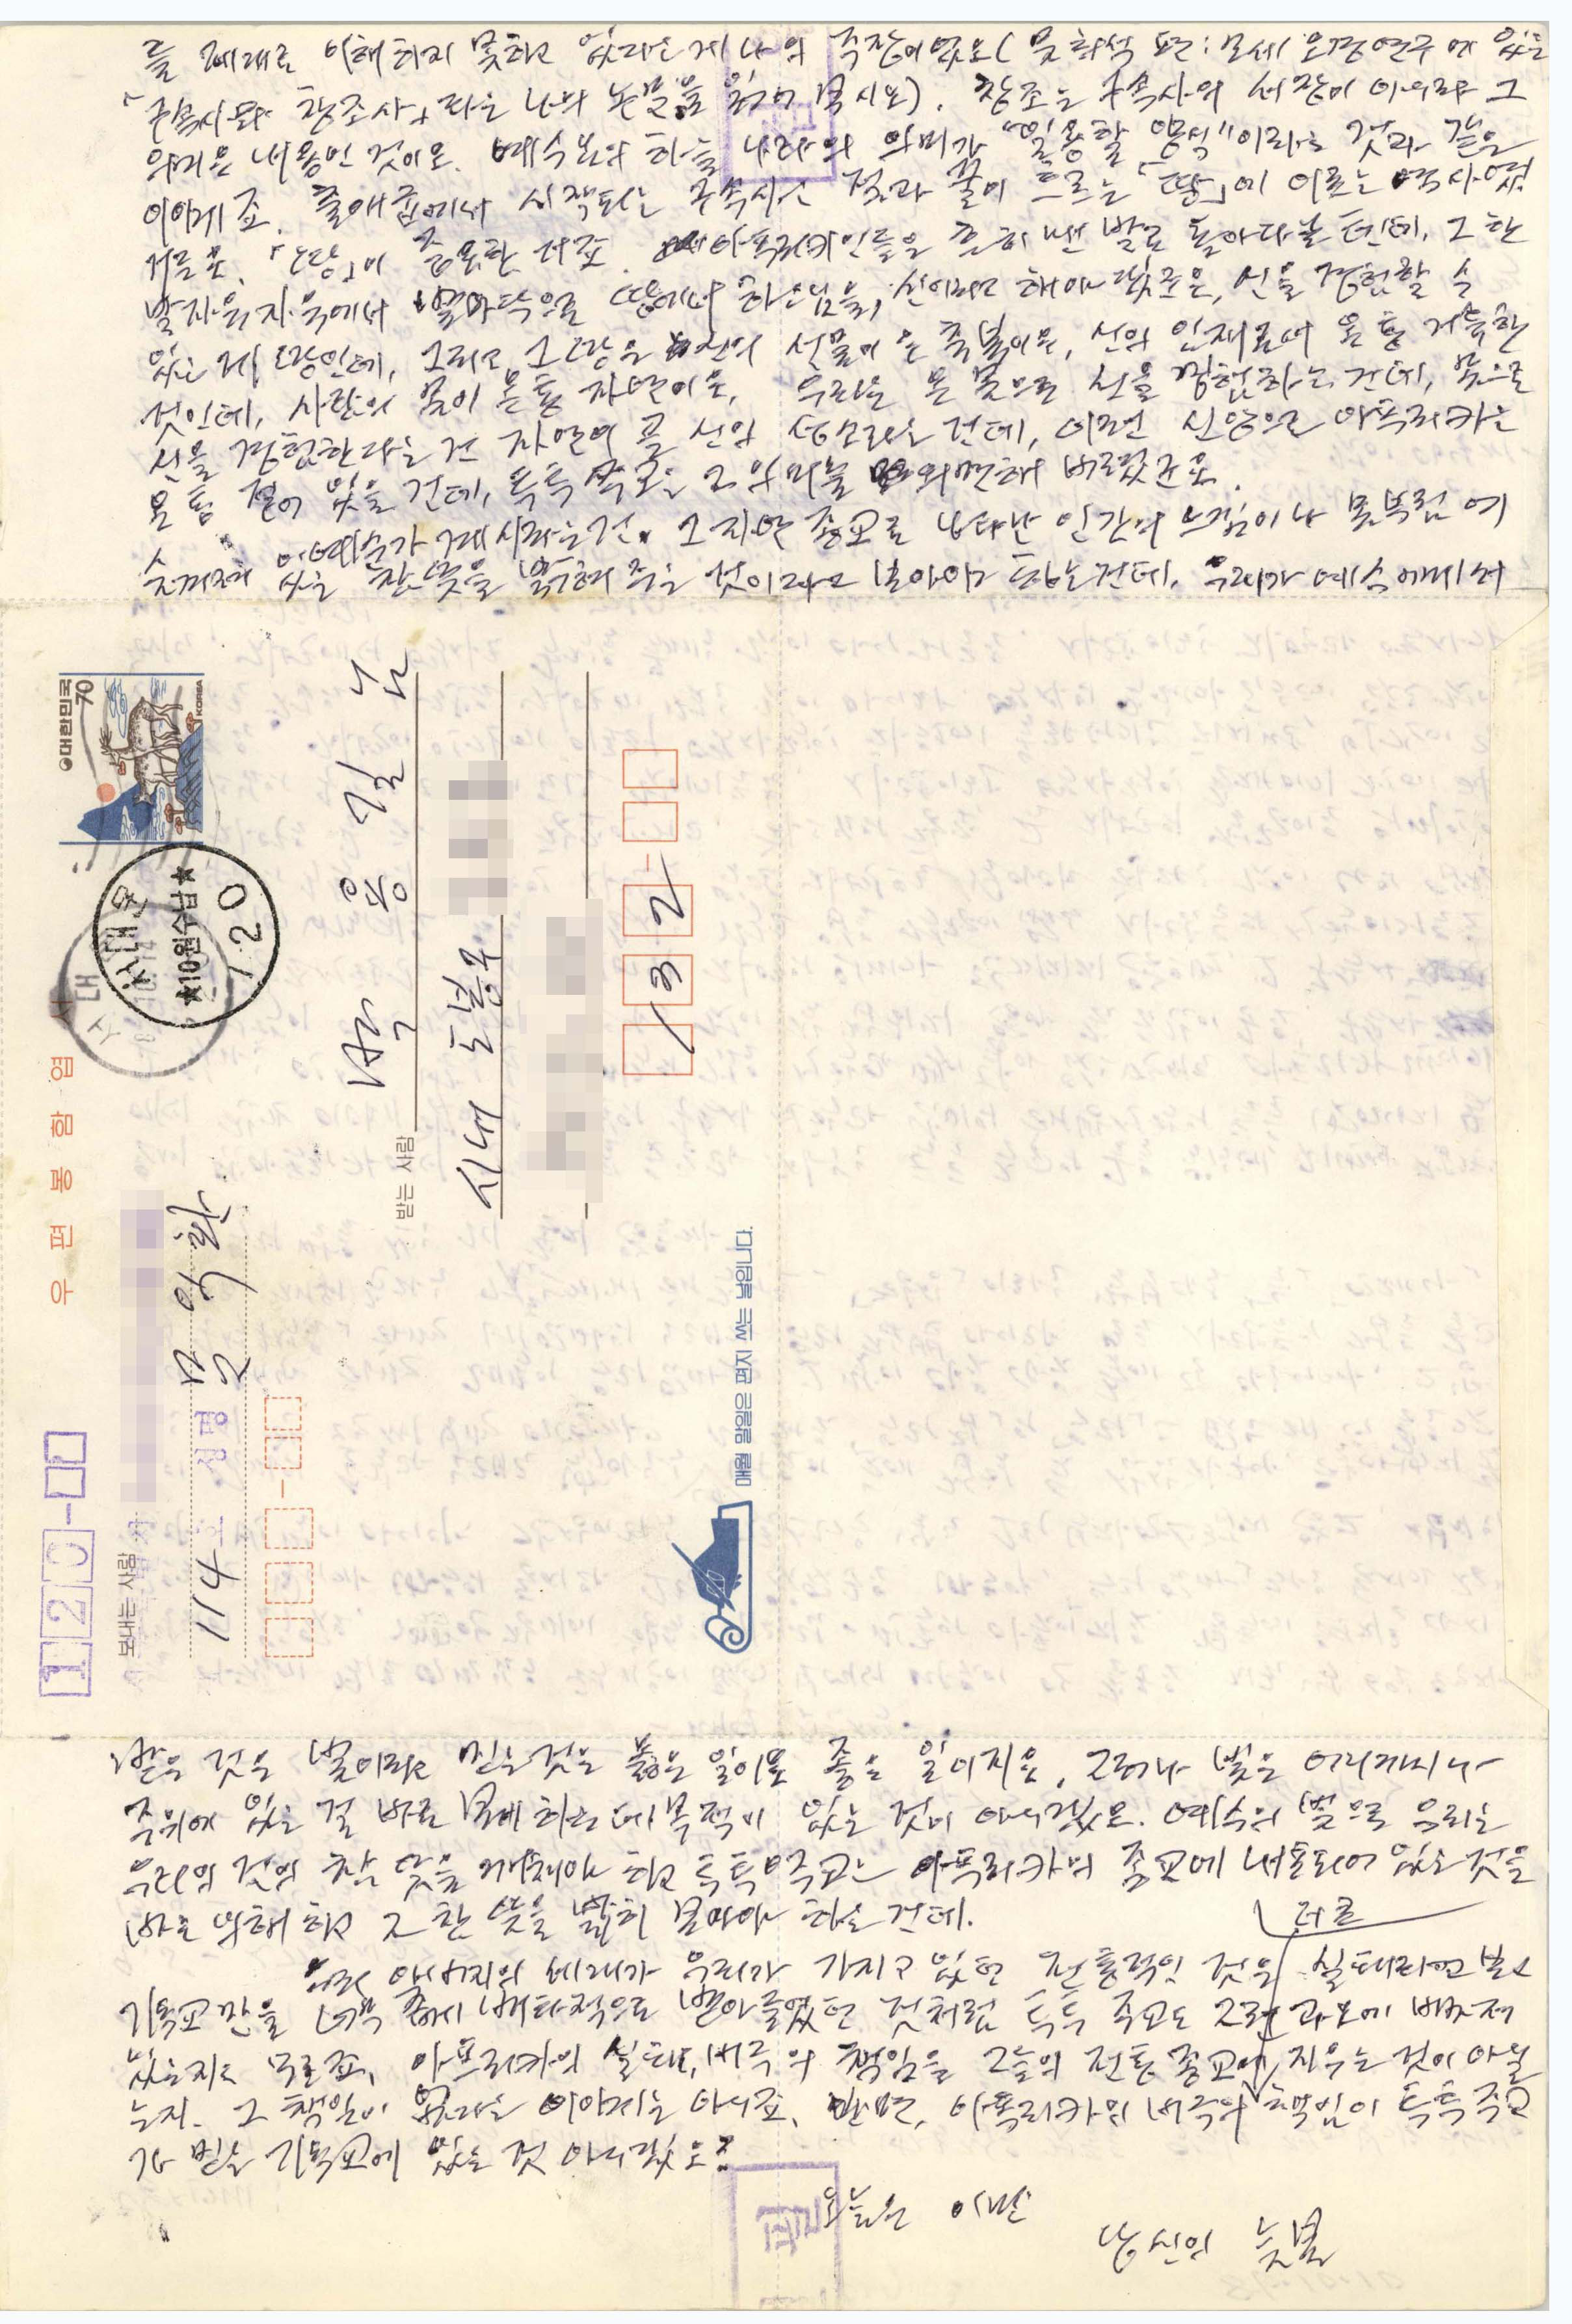 를 제대로 이해하지 못하고 있다는 게 나의 주장이었소( 문희석 편 : 모세오경연구에 있는
「구속사와 창조사」라는 나의 논문을 읽어 보시오). 창조는 구속사의 서장이 아니라 그
내용인 것이오. 예수님의 하늘 나라의 의미가 "일용할 양식"이라는 것과 같은
이야기죠. 출애굽에서 시작되는 구속사는 젖과 꿀이 흐르는 「땅」에 이르는 역사였
거든요. 「땅」이 중요한 거죠. 아프리카인들은 흔히 맨발로 돌아다닐 텐데, 그 한
발자욱 자욱에서 발바닥으로 땅에서 하느님을, 신이라고 해야겠군요, 신을 경험할 수
있는 게 땅인데, 그리고 그 땅은 신의 선물이요 축복이요, 신의 임재로서 온통 거룩한
것인데, 사람의 몸이 온통 자연이요, 우리는 온 몸으로 신을 경험하는 건데, 몸으로
신을 경험한다는 건 자연이 곧 신의 성소라는 건데, 이런 신앙으로 아프리카는
온통 젖어 있을 건데, 투투 주교는 그 의미를 외면해 버렸군요.
예수가 계시라는 건, 그 지만 종교로 나타난 인간의 느낌이나 몸부림에
숨겨져 있는 참 뜻을 밝혀 주는 것이라고 보아야 하는 건데. 우리가 예수에게서
대한민국 70 KOREA
서대문
★10원수납★
120
우편봉함엽서
받는 사람
박용길 님
시내 도봉구
132-
보내는 사람
114호 성명 문익환
120-
매월 말일은 편지 쓰는 날입니다.
받은 것은 빛이라고 믿는 것은 좋은 일이지요. 그러나 빛은 어디까지나
주위에 있는 걸 바로 보게 하는 데 목적이 있는 것이 아니겠소. 예수의 빛으로 우리는
우리의 것의 참 뜻을 캐내야 하고 투투 주교는 아프리카의 종교에 내포되어 있는 것을
바로 이해하고 그 참 뜻을 밝히 보아야 하는 건데.
아버지의 세대가 우리가 가지고 있던 전통적인 것을 실패라고 보고
기독교만을 너무 배타적으로 받아들였던 것처럼 투투 주교도 그런 과오에 빠져
있는지도 모르죠. 아프리카의 실패, 비극의 책임을 그들의 전통 종교에 지우는 것이 아닐
는지. 그 책임이 없다는 이야기는 아니죠. 반면, 아프리카의 비극의 책임이 투투 주교
가 믿는 기독교에 있는 것 아니겠소?
오늘은 이만
당신의 늦봄